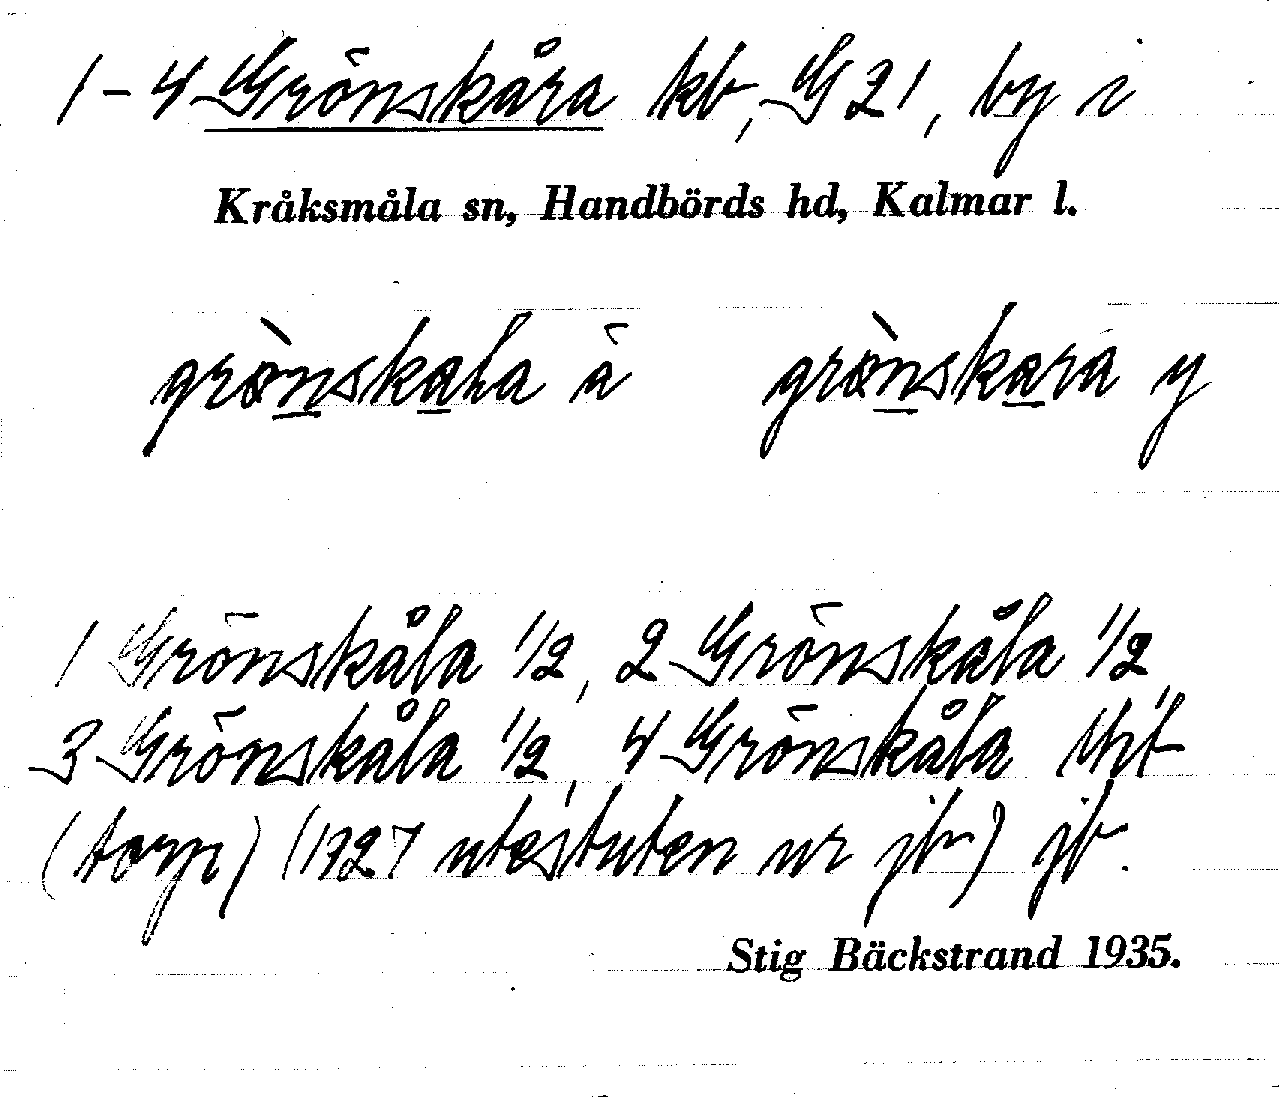 1-4 Grönskåra kb, G 21, by i
Kråksmåla sn, Handbörds hd, Kalmar l.
grònskala ä grònskara y
1 Grönskåla 1/2, 2 Grönskåla 1/2,
3 Grönskåla 1/2, 4 Grönskåla Ut
(torp) (1727 utesluten ur jb) jb.
Stig Bäckstrand 1935.